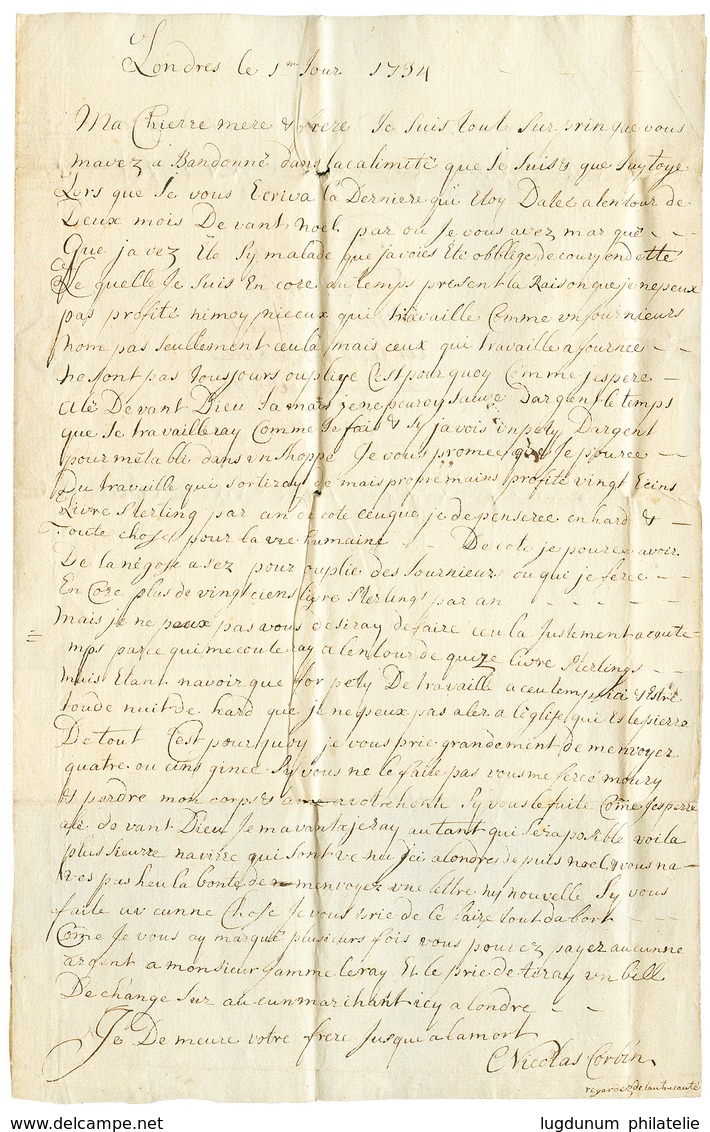 Londres le 1er Jour 1734
Ma Chierre mere & frere Je suis tout surprin que vous
mavez a Bandonné dans la calimité que Je suis & que Jay toye
Lors que Je vous Ecriva la Derniere qui Etoy Dalee a lentour de
Deux mois Devant noel par ou Je vous avez marqué
que javez Ete sy malade que javoies Ete obblige de courry endetté
Ce
De quelle Je suis En core au temps present la Raison que je nepeux
pas profité ni moy ni ceux qui travaille Comme un Journieurs
nom pas seullement ceula mais ceux qui travaille a Journee
ne sont pas Tousjours ouplieye C'est pourquoy Comme jespere
alé Devant Dieu Jamais je ne pouroy sauvé dargent le temps
que Je travailleray Comme Je fait & sy javois un pety Dargent
pour métabli dans un Shoppe Je vous promee que Je pouree
Du travaille qui sortiray de mais propre mains profité vingt Ecins
Livre Sterling par an de coté ceuque je depenseree en hard &
Toute chose pour la vie humaine De coté je pouree avoir
De la négose asez pour ouplie des Journieurs ou qui je feree
En Core plus de vingt ciens livre Sterlings par an
mais je ne peux pas vous desiray de faire ceula Justement a cute-
mps parce qui me couteray a lentour de quize livre Sterlings
mais Etant navoir que for pety De travaille a ceutemps ici & Estre
toude nuit de hard que je ne peux pas aler a l'eglise qui Es le pierre
De tout C'est pourquoy je vous prie grandement de menvoyer
quatre ou cins ginee sy vous ne le faite pas vous me feree moury
& perdre mon corps & ame a votre honte Sy vous le faite Come Jesperre
alé de vant Dieu Je mavantajeray autant qui sera posible voila
plussieurre navirre qui sont venu Jci a londres depuis noel & vous na-
ves pas heu la bonte de menvoyez une lettre ny nouvelle Sy vous
faite au cunne Chose Je vous prie de le faire tout dabort
Come Je vous ay marque plusieurs fois vous pouvez payez aucunne
argent a monsieur Gamme leray Et le prie de tiray un bill
De change sur au cun marchant icy a londre
Je De meure votre frere Jusque a lamort
Nicolas Corbin
regardez de lautre cauté
lugdunum philatelie